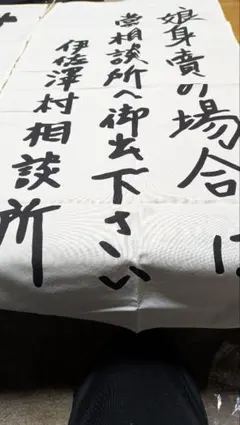 娘身賣の場合は
当相談所へ御出下さい
伊佐澤村相談所